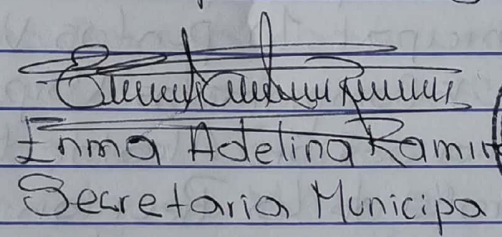 Enma Adelina Ramir
Secretaria Municipa